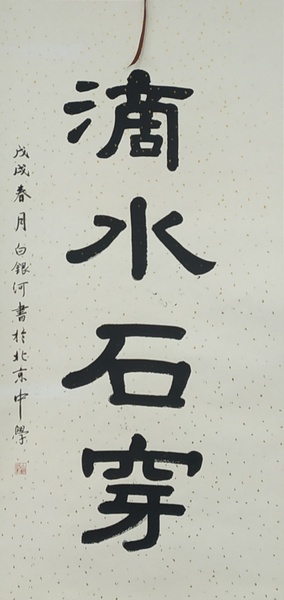 滴水石穿
戊戌春月白银河書於北京中學